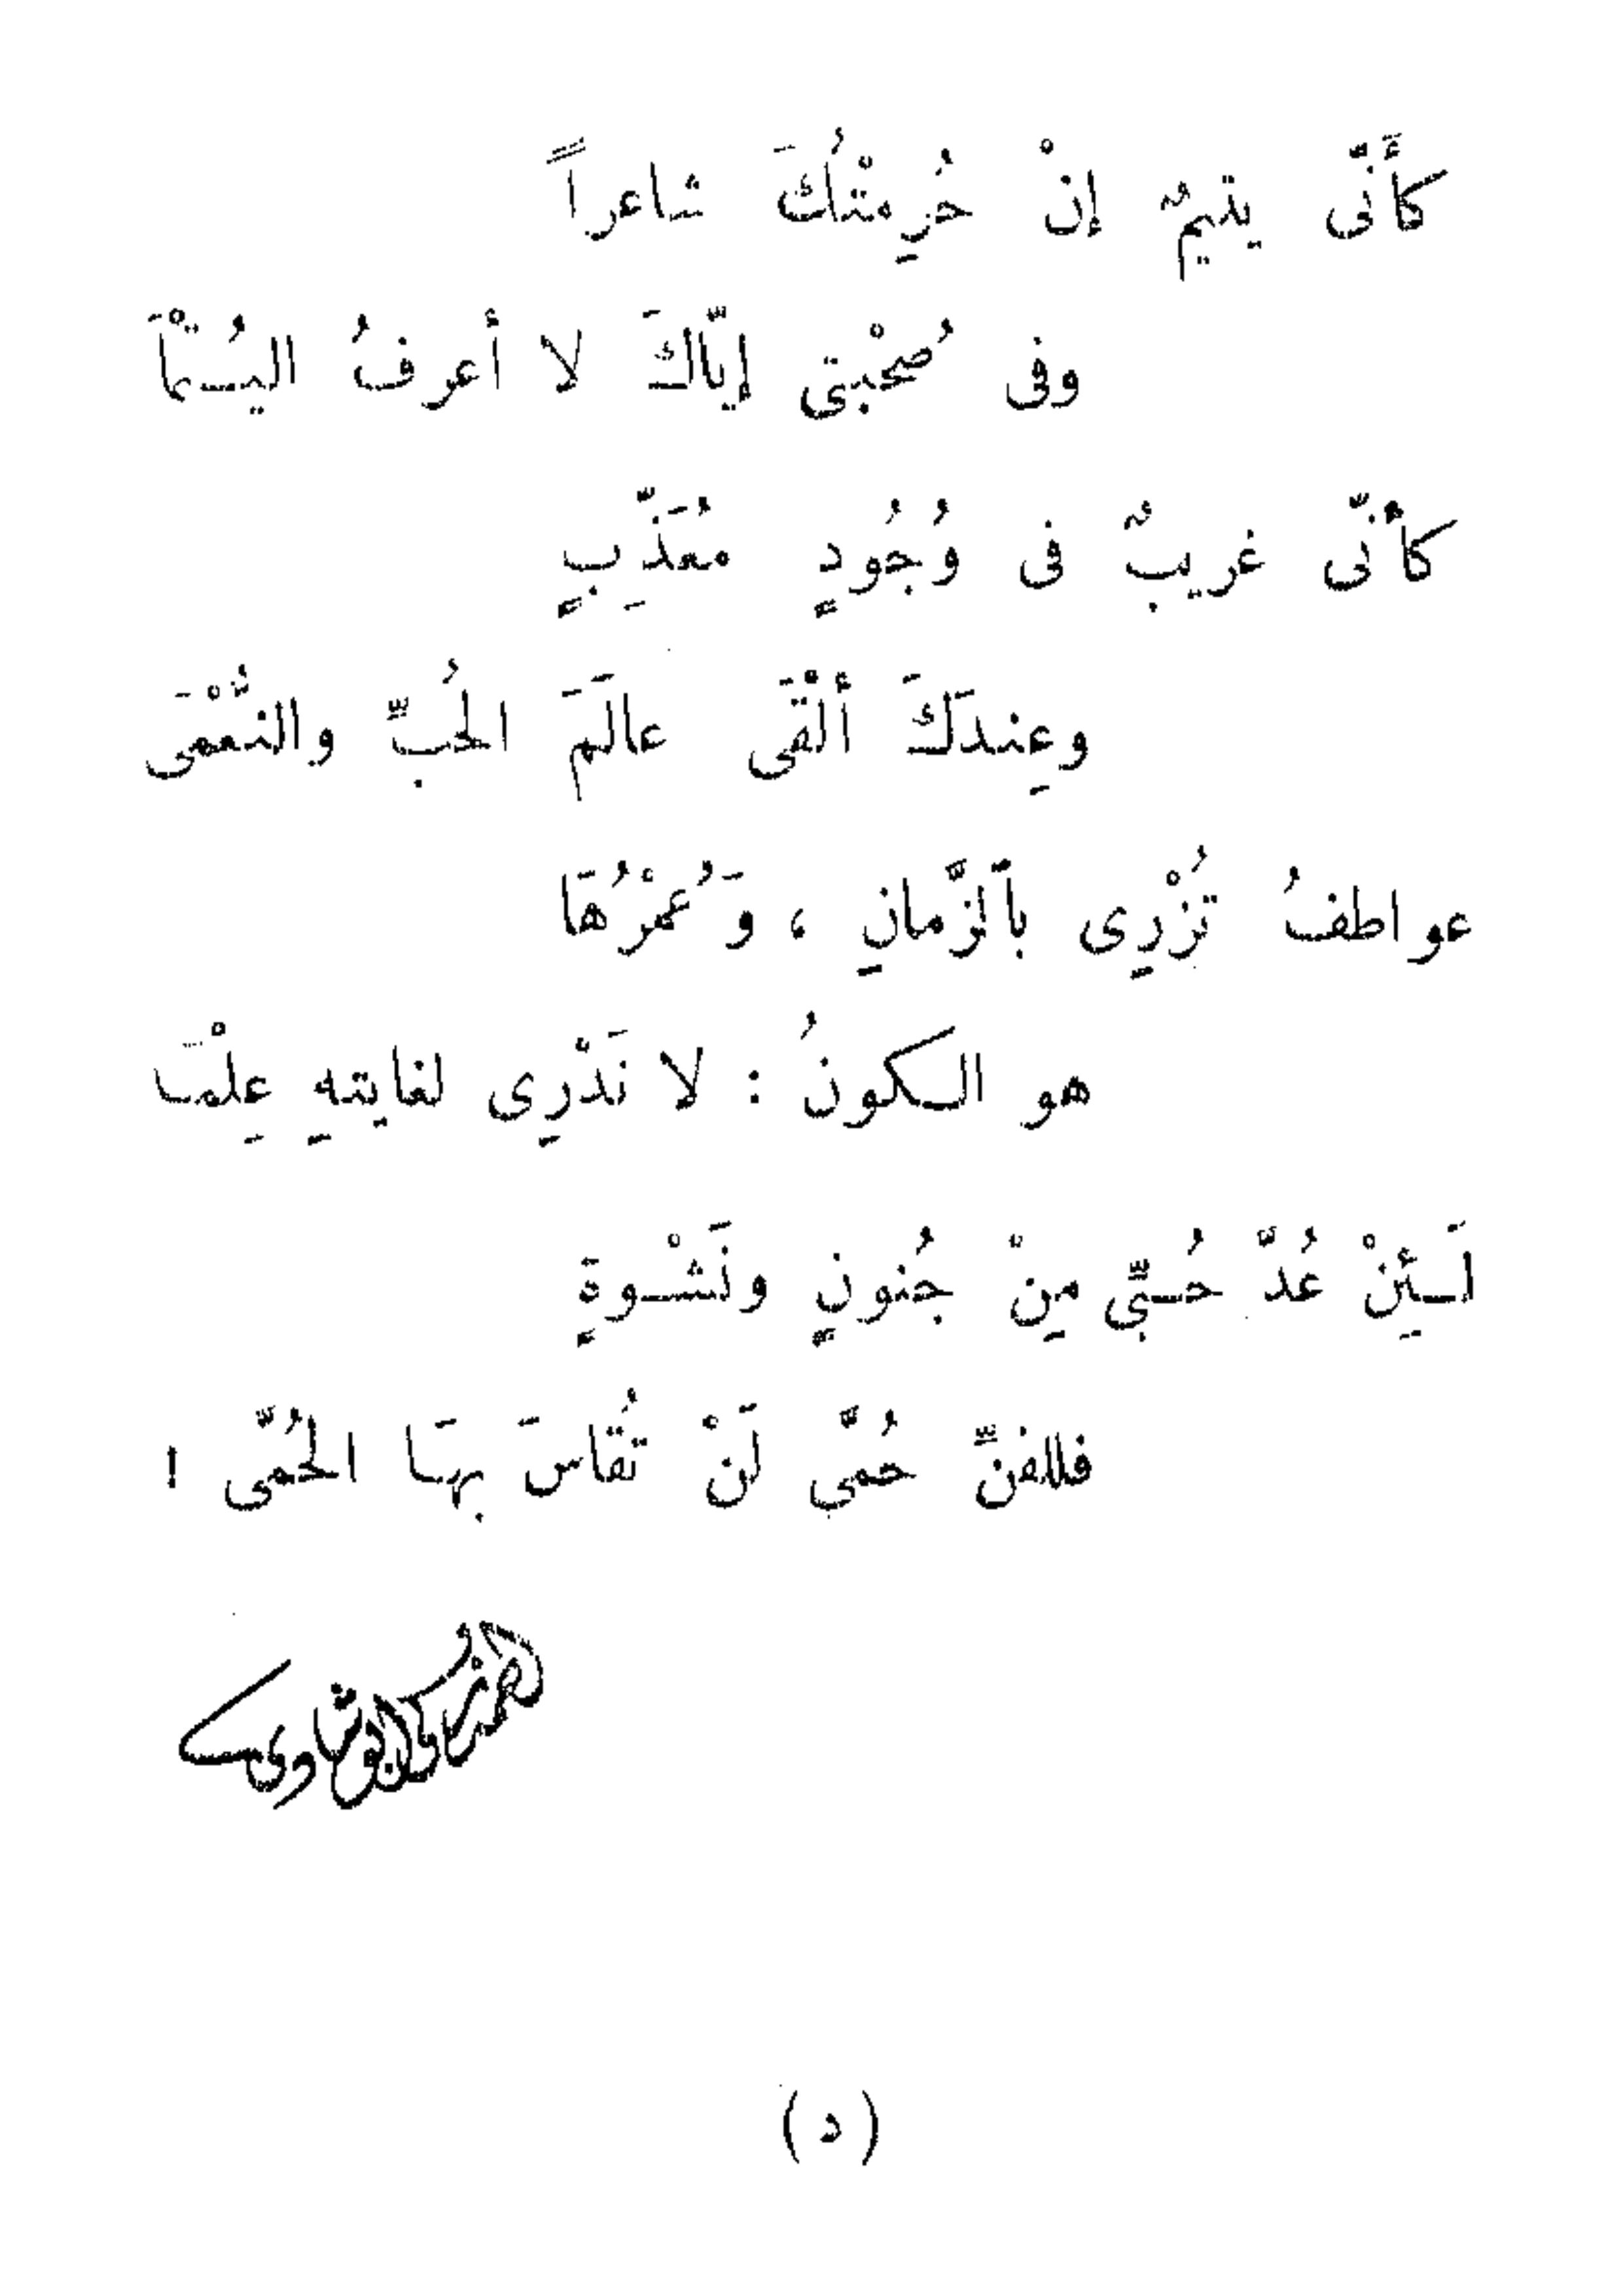 كأَنِّى يتيمٌ إنْ حُرِمْتُكَ شاعراً
وفى صُحْبتى إيّاكَ لا أعرفُ اليُتْمَا
كأنِّى غريبٌ فى وُجُودٍ مُعَذَّبٍ
وعِندَكَ ألْقَى عالَمَ الحُبِّ والنُّعْمَى
عواطفُ تُزْرِى بالزَّمانِ ، وَعُمْرُهَا
هو الكونُ : لا نَدْرِى لغايتهِ عِلْمَا
لَئِنْ عُدَّ حُبِّى مِنْ جُنونٍ ونَشْوةٍ
فللفنِّ حُمَّى لَنْ تُقَاسَ بهَا الحُمَّى !
احمد زكى ابوشادى
(د)